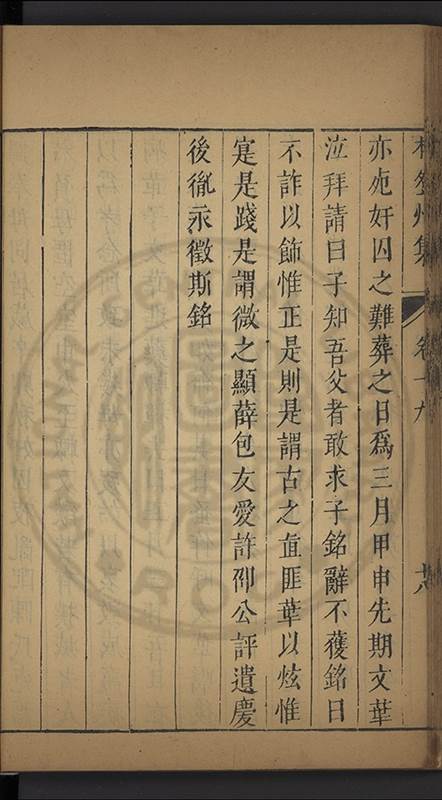 集 卷十九 十八
亦𣦸奸囚之難葬之日爲三月甲申先期文華
泣拜請曰子知吾父者敢求子銘辭不獲銘曰
不詐以飾惟正是則是謂古之直匪華以炫惟
寔是踐是謂微之顯薛包友愛許邵公評遺慶
後胤永徵斯銘